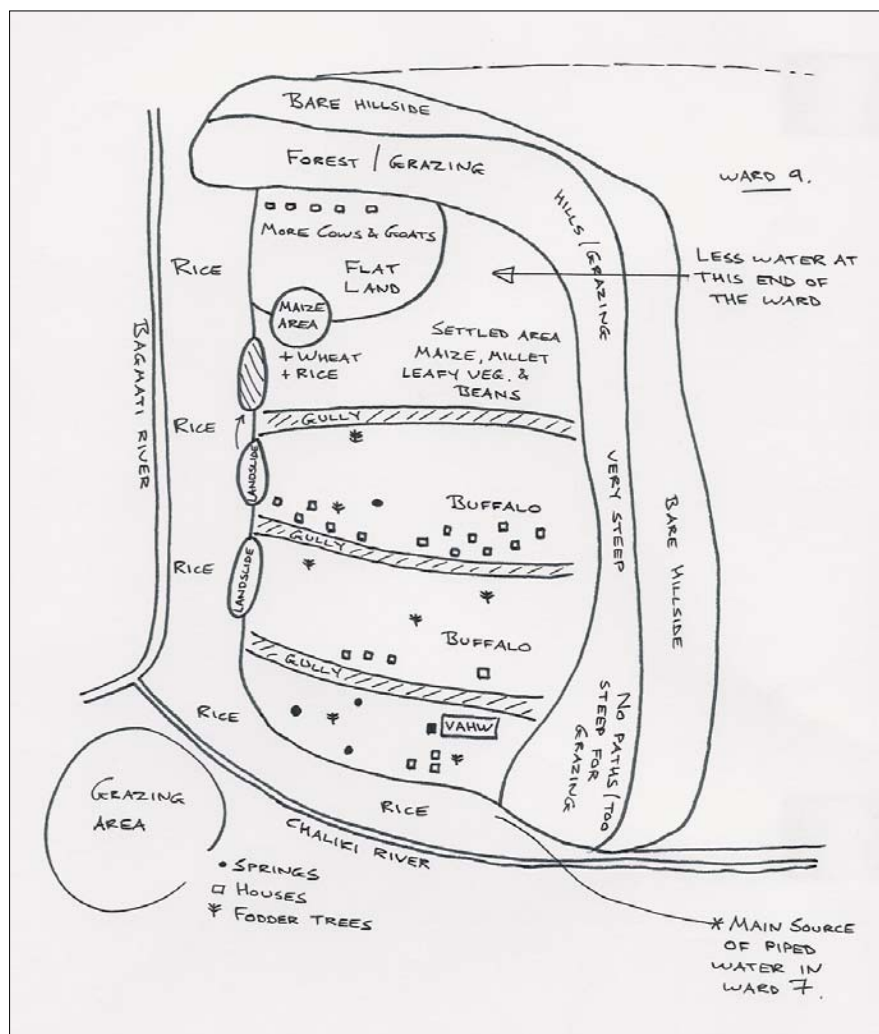 BARE HILLSIDE
FOREST / GRAZING
WARD 9.
HILLS/GRAZING
MORE COWS & GOATS
LESS WATER AT
THIS END OF
THE WARD
RICE
FLAT
LAND
MAIZE
AREA
SETTLED AREA
MAIZE, MILLET
LEAFY VEG. &
BEANS
+ WHEAT
+ RICE
BAGMATI RIVER
RICE
GULLY
LANDSLIDE
BUFFALO
VERY STEEP
BARE HILLSIDE
GULLY
RICE
LANDSLIDE
BUFFALO
GULLY
NO PATHS/TOO
STEEP FOR
GRAZING
RICE
VAHW
GRAZING
AREA
RICE
CHALIKI RIVER
SPRINGS
HOUSES
FODDER TREES
* MAIN SOURCE
OF PIPED
WATER IN
WARD 7.